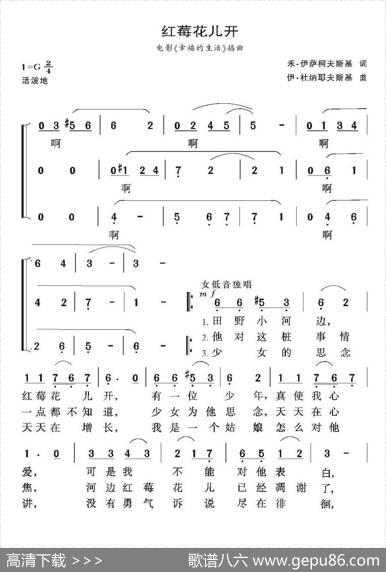 红莓花儿开
电影《幸福的生活》插曲
1=G 2/4
禾·伊萨柯夫斯基 词
活泼地
伊·杜纳耶夫斯基 曲
0 3 #5 6
啊
0 #1 2 4
啊
啊
啊
啊
6 4 3 - 3 -
4 2 7 - 1 -
2 6 6 - 6 -
女低音独唱
mf
6 6 #5 3 6 2
1. 田 野 小 河 边,
2. 他 对 这 桩 事 情
3. 少 女 的 思 念
1 1 7 6 7 6 · 0 6 6 #5 3 6 2 1 1 7 6 7
红 莓 花 儿 开, 有 一 位 少 年, 真 使 我 心
一 点 都 不 知 道, 少 女 为 他 思 念, 天 天 在 心
天 天 在 增 长, 我 是 一 个 姑 娘 怎 么 对 他
爱, 可 是 我 不 能 对 他 表 白,
焦, 河 边 红 莓 花 儿 已 经 凋 谢 了,
讲, 没 有 勇 气 诉 说 尽 在 徘 徊,
高清下载 >>>
歌谱八六 www.gepu86.com